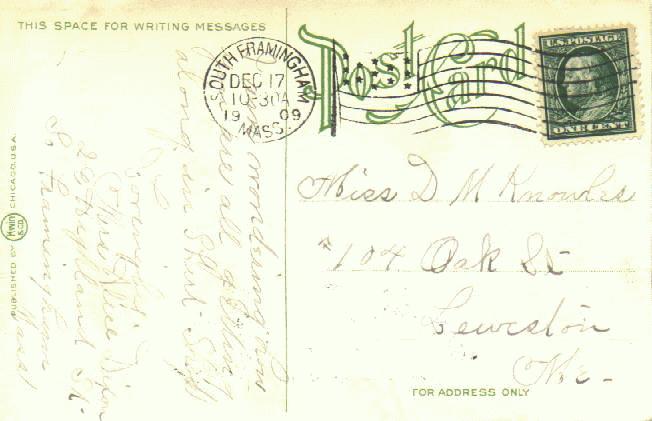 THIS SPACE FOR WRITING MESSAGES
Post Card
SOUTH FRAMINGHAM
DEC 17
10-30A
1909
MASS.
U.S. POSTAGE
ONE CENT
wondering how
you are all &
along in Shirt
Lovingly
Mrs Alice Dixon
26 Highland St.
So Framingham
Mass
Miss D M Knowles
#104 Oak St
Lewiston
Me-
FOR ADDRESS ONLY
PUBLISHED BY KWIN & CO. CHICAGO, U.S.A.